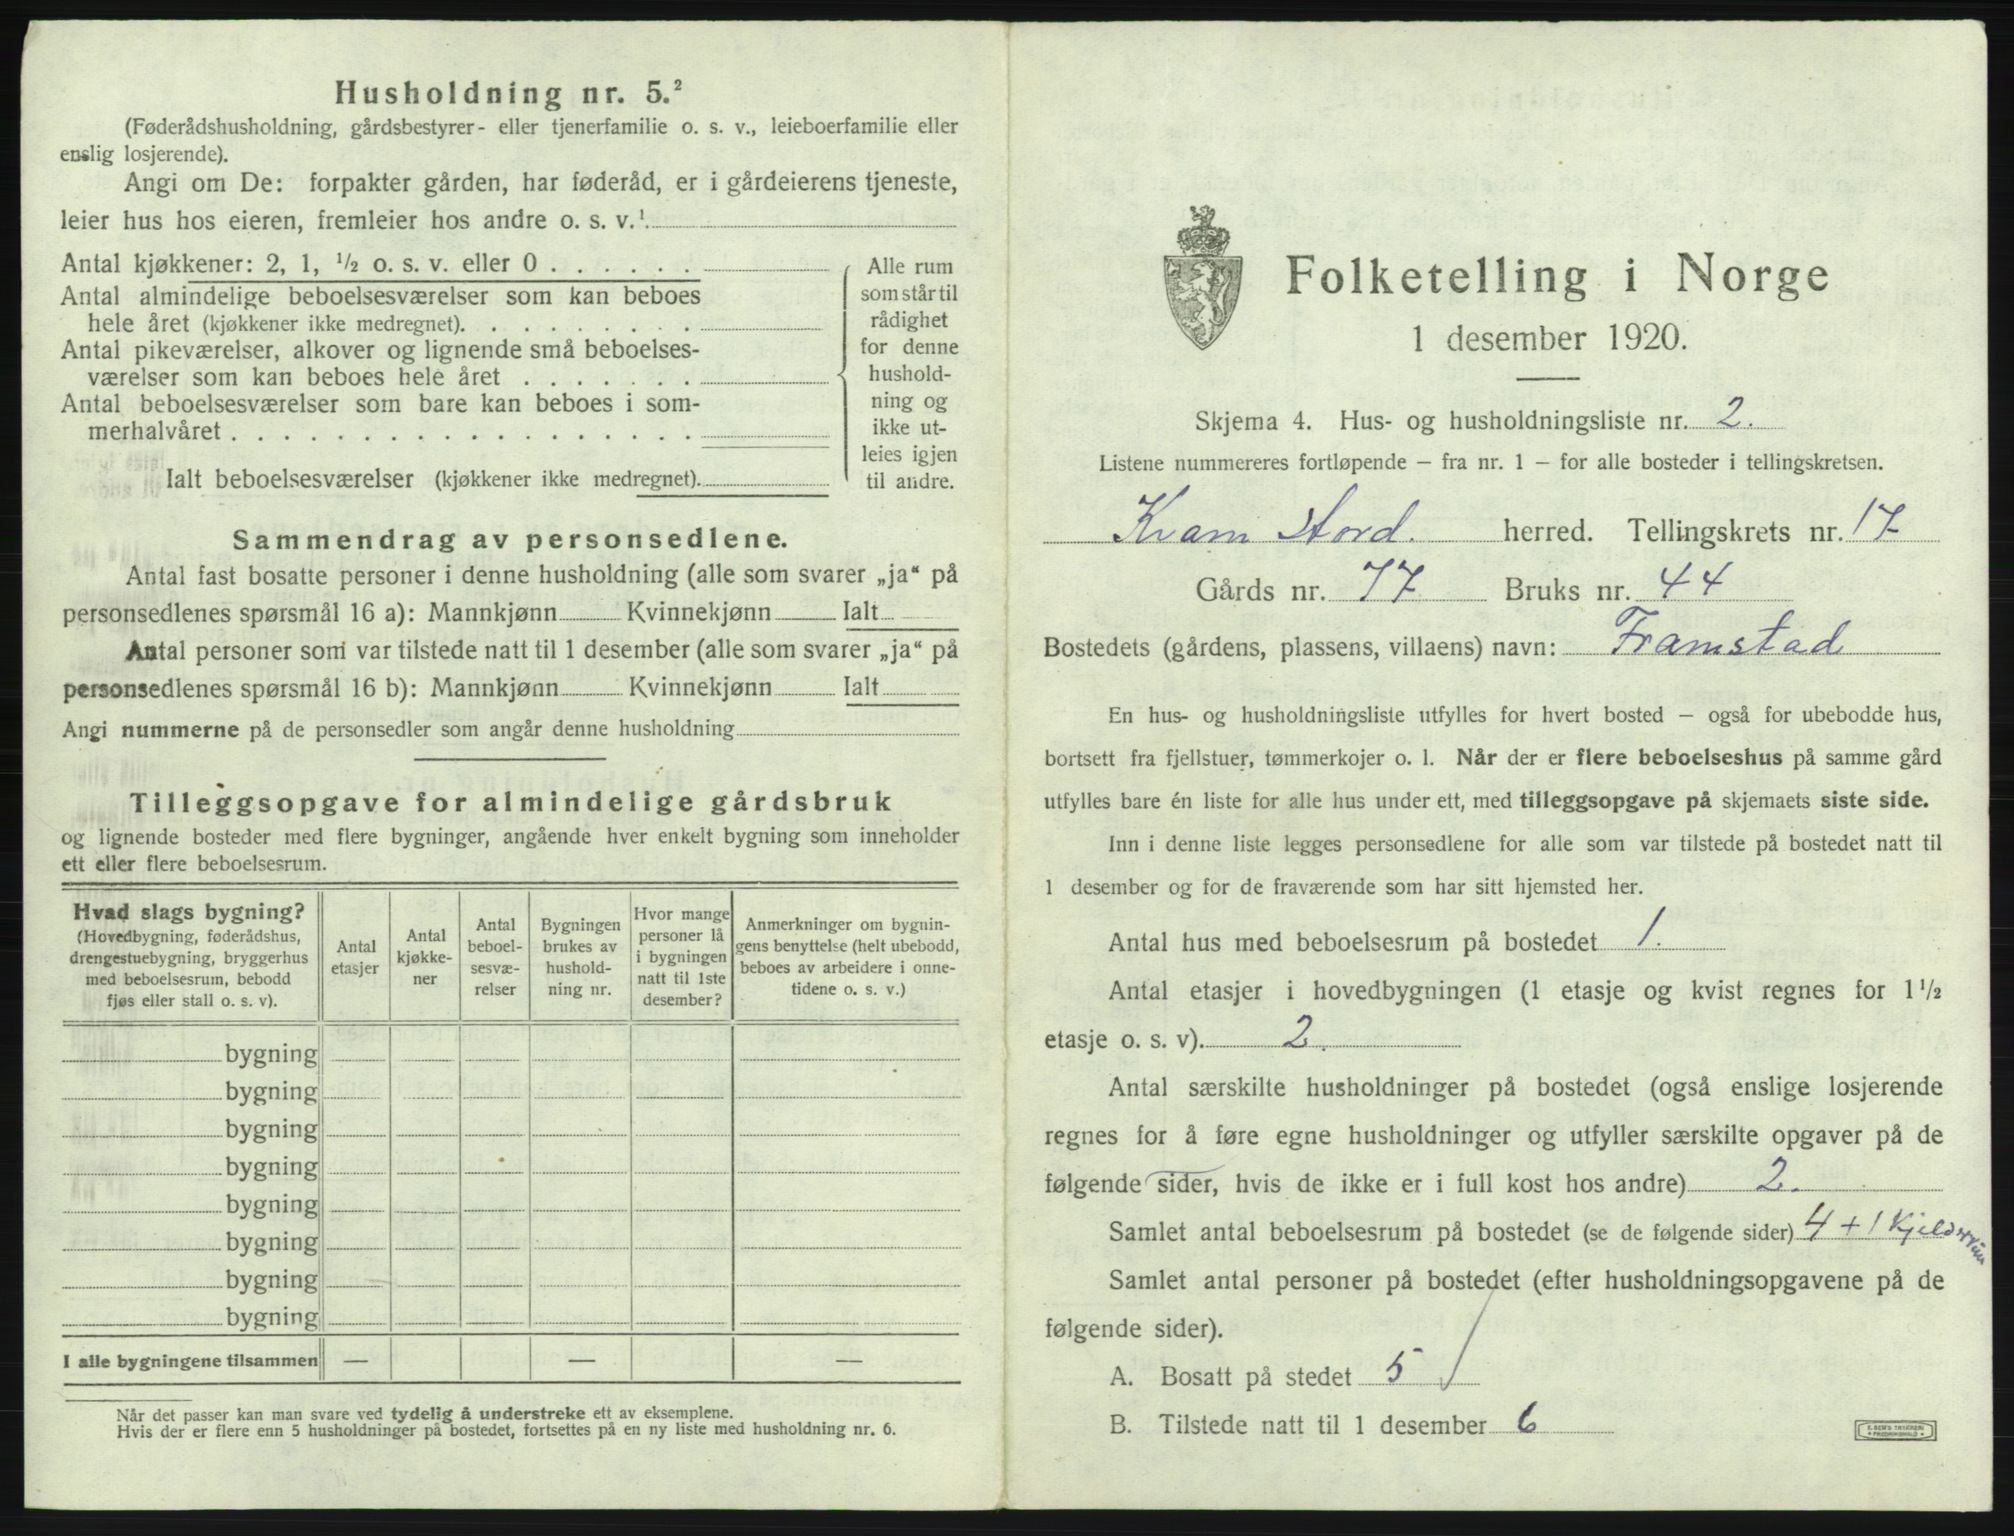 Husholdning nr. 5.²
(Føderådshusholdning, gårdsbestyrer- eller tjenerfamilie o. s. v., leieboerfamilie eller
enslig losjerende).
Angi om De: forpakter gården, har føderåd, er i gårdeierens tjeneste,
leier hus hos eieren, fremleier hos andre o. s. v.¹
Antal kjøkkener: 2, 1, ½ o. s. v. eller 0 . . . . . .
Antal almindelige beboelsesværelser som kan beboes
hele året (kjøkkener ikke medregnet). . . . . . . . .
Antal pikeværelser, alkover og lignende små beboelses-
værelser som kan beboes hele året . . . . . . .
Antal beboelsesværelser som bare kan beboes i som-
merhalvåret . . . . . . . . . . . . . . . . . .
Ialt beboelsesværelser (kjøkkener ikke medregnet).
Alle rum
som står til
rådighet
for denne
hushold-
ning og
ikke ut-
leies igjen
til andre.
Sammendrag av personsedlene.
Antal fast bosatte personer i denne husholdning (alle som svarer „ja“ på
personsedlenes spørsmål 16 a): Mannkjønn Kvinnekjønn Ialt
Antal personer som var tilstede natt til 1 desember (alle som svarer „ja“ på
personsedlenes spørsmål 16 b): Mannkjønn Kvinnekjønn Ialt
Angi nummerne på de personsedler som angår denne husholdning
Tilleggsopgave for almindelige gårdsbruk
og lignende bosteder med flere bygninger, angående hver enkelt bygning som inneholder
ett eller flere beboelsesrum.
Hvad slags bygning?
(Hovedbygning, føderådshus,
drengestuebygning, bryggerhus
med beboelsesrum, bebodd
fjøs eller stall o. s. v).
Antal
etasjer
Antal
kjøkke-
ner
Antal
beboel-
sesvæ-
relser
Bygningen
brukes av
hushold-
ning nr.
Hvor mange
personer lå
i bygningen
natt til 1ste
desember?
Anmerkninger om bygnin-
gens benyttelse (helt ubebodd,
beboes av arbeidere i onne-
tidene o. s. v.)
bygning
bygning
bygning
bygning
bygning
bygning
bygning
bygning
I alle bygningene tilsammen — — —
Når det passer kan man svare ved tydelig å understreke ett av eksemplene.
Hvis der er flere enn 5 husholdninger på bostedet, fortsettes på en ny liste med husholdning nr. 6.
Folketelling i Norge
1 desember 1920.
Skjema 4. Hus- og husholdningsliste nr. 2.
Listene nummereres fortløpende – fra nr. 1 – for alle bosteder i tellingskretsen.
Kvam Stord. herred. Tellingskrets nr. 17
Gårds nr. 77 Bruks nr. 44
Bostedets (gårdens, plassens, villaens) navn: Framstad
En hus- og husholdningsliste utfylles for hvert bosted – også for ubebodde hus,
bortsett fra fjellstuer, tømmerkojer o. l. Når der er flere beboelseshus på samme gård
utfylles bare én liste for alle hus under ett, med tilleggsopgave på skjemaets siste side.
Inn i denne liste legges personsedlene for alle som var tilstede på bostedet natt til
1 desember og for de fraværende som har sitt hjemsted her.
Antal hus med beboelsesrum på bostedet 1.
Antal etasjer i hovedbygningen (1 etasje og kvist regnes for 1½
etasje o. s. v). 2.
Antal særskilte husholdninger på bostedet (også enslige losjerende
regnes for å føre egne husholdninger og utfyller særskilte opgaver på de
følgende sider, hvis de ikke er i full kost hos andre) 2.
Samlet antal beboelsesrum på bostedet (se de følgende sider) 4 + 1
Samlet antal personer på bostedet (efter husholdningsopgavene på de
følgende sider).
A. Bosatt på stedet 5
B. Tilstede natt til 1 desember 6